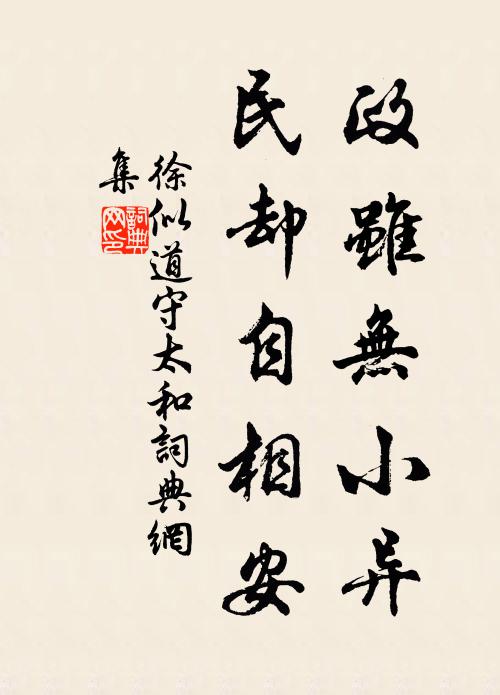 政雖無小异
民却自相安
徐似道守太和詞典網
集
詞典網印